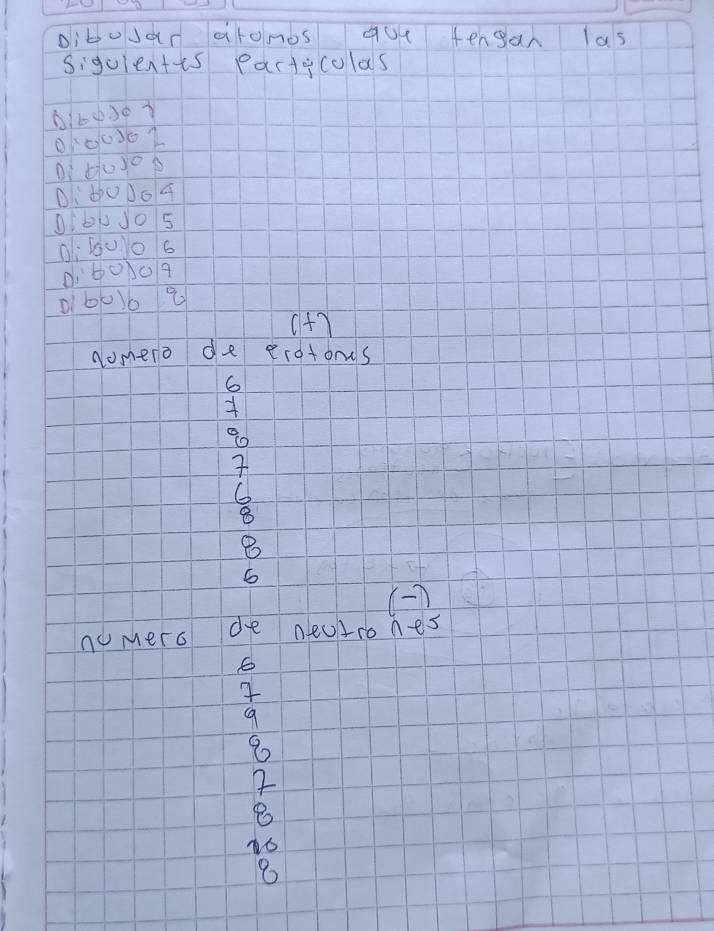 Dibujar átomos que tengan las
siguientes particulas
Dibujo 1
Dibujo 2
Dibujo 3
Dibujo 4
Dibujo 5
Dibujo 6
Dibujo 7
Dibujo 8
(+)
numero de protones
6
7
8
7
6
8
8
6
(-)
numero de neutrones
6
7
9
8
7
8
10
8